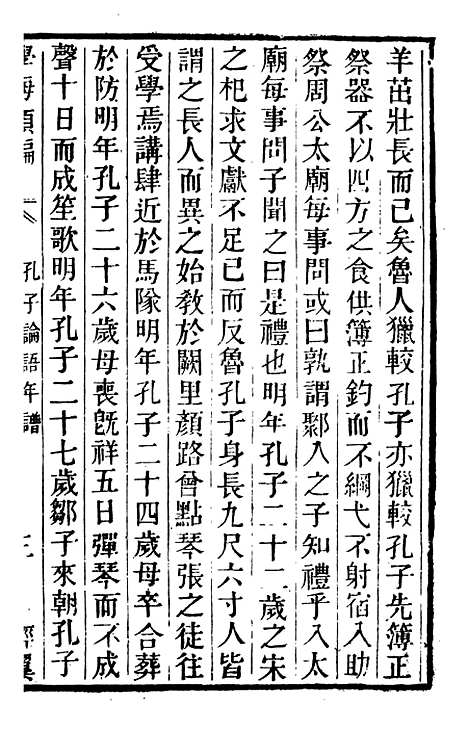 羊茁壯長而已矣魯人獵較孔子亦獵較孔子先簿正
祭器不以四方之食供簿正釣而不綱弋不射宿入助
祭周公太廟每事問或曰孰謂鄹人之子知禮乎入太
廟每事問子聞之曰是禮也明年孔子二十二歲之宋
之杞求文獻不足已而反魯孔子身長九尺六寸人皆
謂之長人而異之始教於闕里顏路曾點琴張之徒往
受學焉講肆近於馬隊明年孔子二十四歲母卒合葬
於防明年孔子二十六歲母喪旣祥五日彈琴而不成
聲十日而成笙歌明年孔子二十七歲鄒子來朝孔子
學海類編
孔子論語年譜